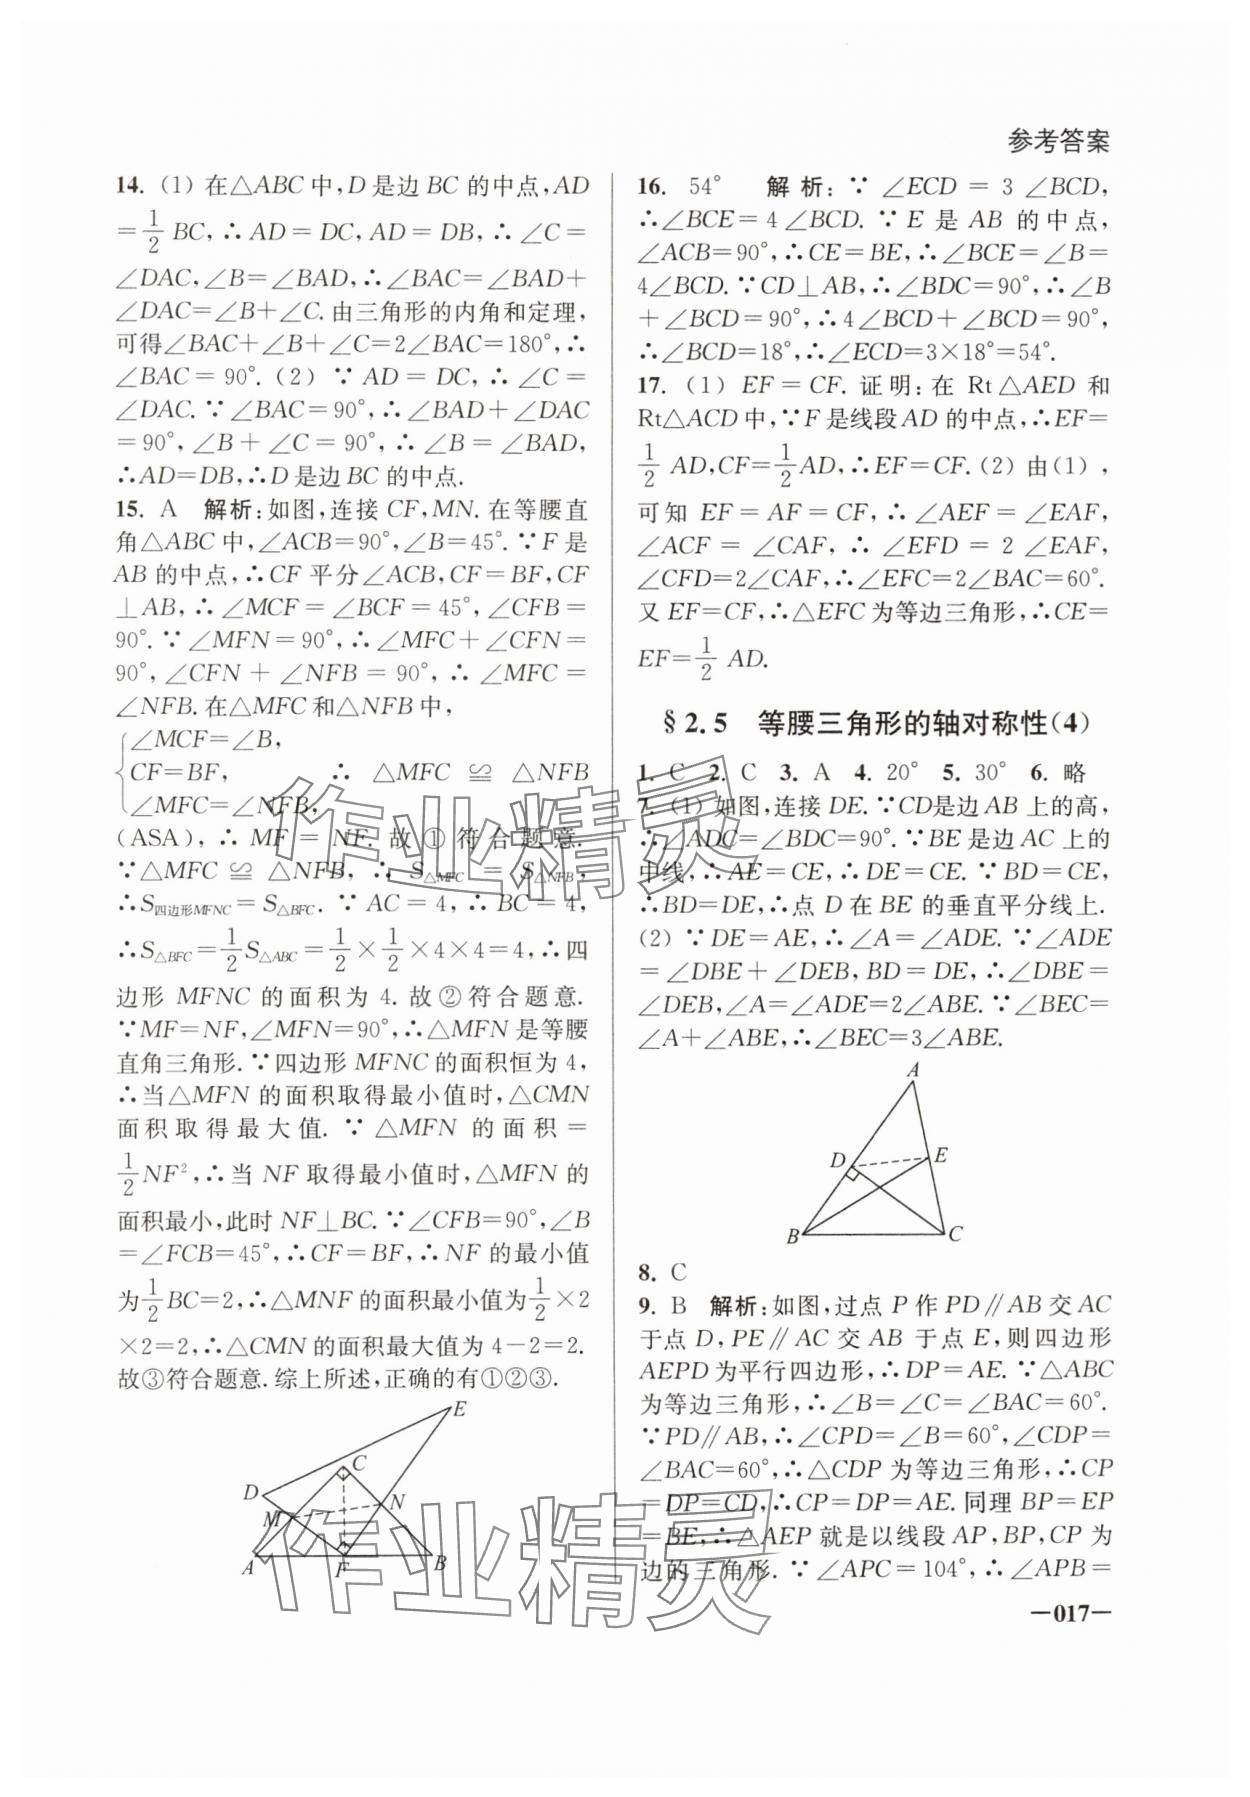 参考答案
14. (1) 在△ABC中,D是边BC的中点,AD
=1/2 BC,∴AD=DC,AD=DB,∴∠C=
∠DAC,∠B=∠BAD,∴∠BAC=∠BAD+
∠DAC=∠B+∠C.由三角形的内角和定理,
可得∠BAC+∠B+∠C=2∠BAC=180°,∴
∠BAC=90°.(2) ∵AD=DC,∴∠C=
∠DAC.∵∠BAC=90°,∴∠BAD+∠DAC
=90°,∠B+∠C=90°,∴∠B=∠BAD,
∴AD=DB,∴D是边BC的中点.
15. A 解析:如图,连接CF,MN.在等腰直
角△ABC中,∠ACB=90°,∠B=45°.∵F是
AB的中点,∴CF平分∠ACB,CF=BF,CF
⊥AB,∴∠MCF=∠BCF=45°,∠CFB=
90°.∵∠MFN=90°,∴∠MFC+∠CFN=
90°,∠CFN+∠NFB=90°,∴∠MFC=
∠NFB.在△MFC和△NFB中,
∠MCF=∠B,
CF=BF, ∴△MFC≌△NFB
∠MFC=∠NFB,
(ASA),∴MF=NF.故①符合题意.
∵△MFC≌△NFB,∴S△MFC=S△NFB,
∴S四边形MFNC=S△BFC.∵AC=4,∴BC=4,
∴S△BFC=1/2S△ABC=1/2×1/2×4×4=4,∴四
边形MFNC的面积为4.故②符合题意.
∵MF=NF,∠MFN=90°,∴△MFN是等腰
直角三角形.∵四边形MFNC的面积恒为4,
∴当△MFN的面积取得最小值时,△CMN
面积取得最大值.∵△MFN的面积=
1/2NF²,∴当NF取得最小值时,△MFN的
面积最小,此时NF⊥BC.∵∠CFB=90°,∠B
=∠FCB=45°,∴CF=BF,∴NF的最小值
为1/2BC=2,∴△MNF的面积最小值为1/2×2
×2=2,∴△CMN的面积最大值为4-2=2.
故③符合题意.综上所述,正确的有①②③.
E
C
D
N
M
A
F
B
16. 54° 解析:∵∠ECD=3∠BCD,
∴∠BCE=4∠BCD.∵E是AB的中点,
∠ACB=90°,∴CE=BE,∴∠BCE=∠B=
4∠BCD.∵CD⊥AB,∴∠BDC=90°,∴∠B
+∠BCD=90°,∴4∠BCD+∠BCD=90°,
∴∠BCD=18°,∴∠ECD=3×18°=54°.
17. (1) EF=CF.证明:在Rt△AED和
Rt△ACD中,∵F是线段AD的中点,∴EF=
1/2 AD,CF=1/2AD,∴EF=CF.(2) 由(1),
可知EF=AF=CF,∴∠AEF=∠EAF,
∠ACF=∠CAF,∴∠EFD=2∠EAF,
∠CFD=2∠CAF,∴∠EFC=2∠BAC=60°.
又EF=CF,∴△EFC为等边三角形,∴CE=
EF=1/2 AD.
§2.5 等腰三角形的轴对称性(4)
1. C 2. C 3. A 4. 20° 5. 30° 6. 略
7. (1) 如图,连接DE.∵CD是边AB上的高,
∴∠ADC=∠BDC=90°.∵BE是边AC上的
中线,∴AE=CE,∴DE=CE.∵BD=CE,
∴BD=DE,∴点D在BE的垂直平分线上.
(2) ∵DE=AE,∴∠A=∠ADE.∵∠ADE
=∠DBE+∠DEB,BD=DE,∴∠DBE=
∠DEB,∠A=∠ADE=2∠ABE.∵∠BEC=
∠A+∠ABE,∴∠BEC=3∠ABE.
A
D
E
B
C
8. C
9. B 解析:如图,过点P作PD∥AB交AC
于点D,PE∥AC交AB于点E,则四边形
AEPD为平行四边形,∴DP=AE.∵△ABC
为等边三角形,∴∠B=∠C=∠BAC=60°.
∵PD∥AB,∴∠CPD=∠B=60°,∠CDP=
∠BAC=60°,∴△CDP为等边三角形,∴CP
=DP=CD,∴CP=DP=AE.同理BP=EP
=BE,∴△AEP就是以线段AP,BP,CP为
边的三角形.∵∠APC=104°,∴∠APB=
—017—
作业精灵
作业精灵